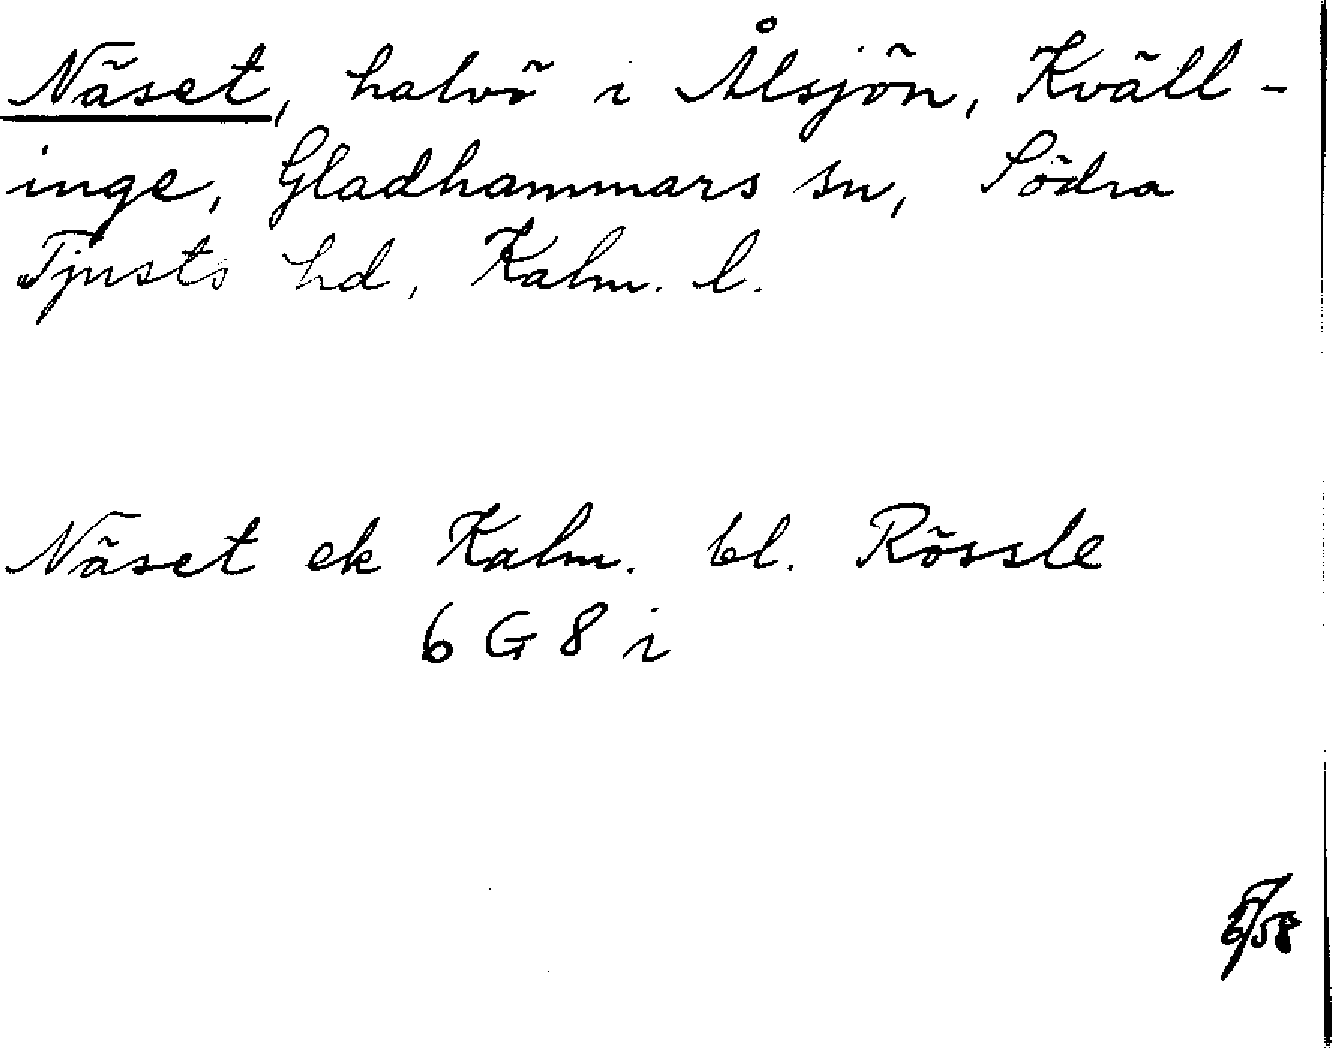 Näset, halvö i Ålsjön, Kväll-
inge, Gladhammars sn, Södra
Tjusts hd, Kalm. l.
Näset ek Kalm. bl. Rössle
6 G 8 i